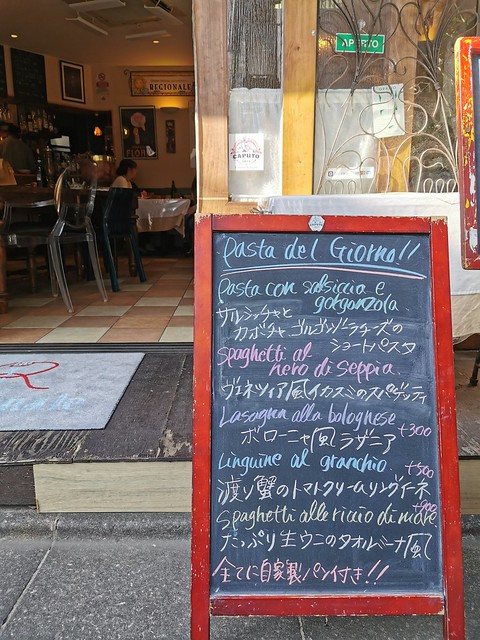 REGIONALE
APERTO
CAPUTO
Pasta del Giorno!!
Pasta con salsiccia e
gorgonzola
サルシッチャと
カボチャ ゴルゴンゾーラチーズの
ショートパスタ
Spaghetti al
nero di seppia.
ヴェネツィア風イカスミのスパゲッティ
Lasagna alla bolognese
ボローニャ風ラザニア +300
Linguine al granchio. +500
渡り蟹のトマトクリームリングイーネ
+900
Spaghetti alle riccio di mare
たっぷり生ウニのタオルミーナ風
全てに自家製パン付き!!